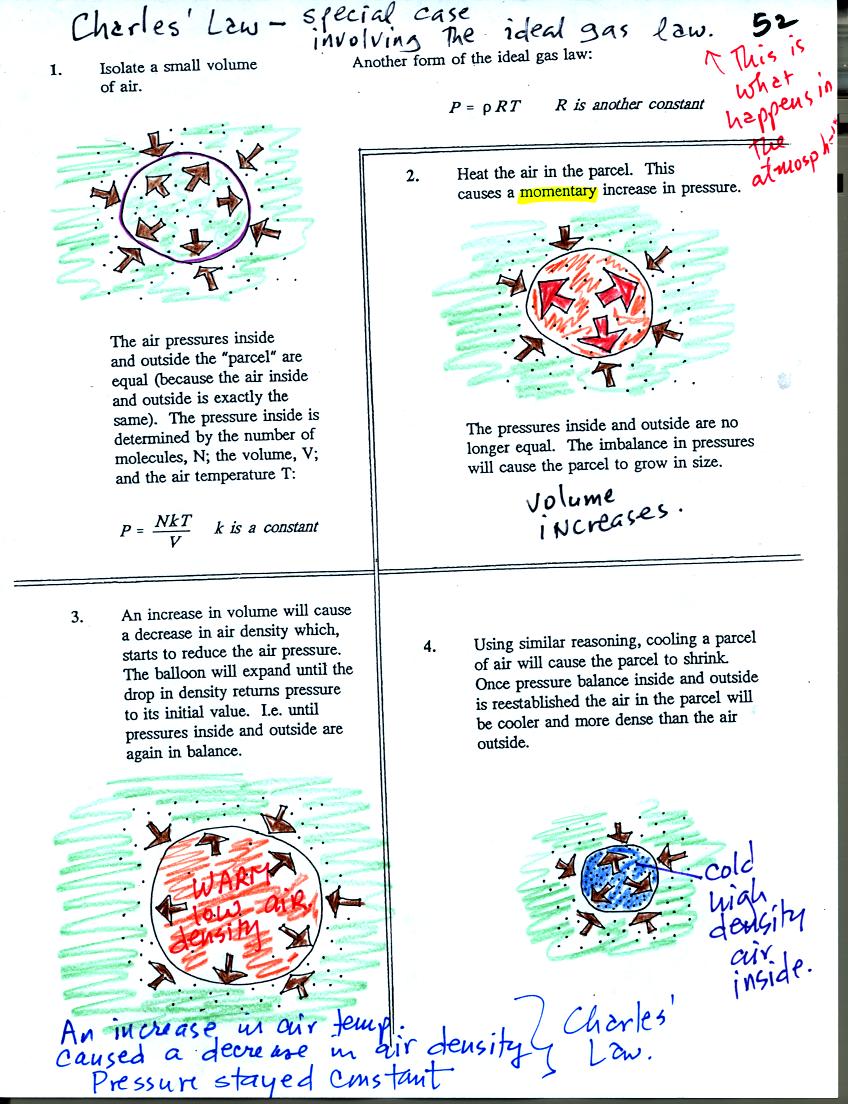 Charles' Law - special case
involving the ideal gas law.
52
↑ This is
what
happens in
the
atmosph
1. Isolate a small volume
of air.
Another form of the ideal gas law:
P = ρRT R is another constant
The air pressures inside
and outside the "parcel" are
equal (because the air inside
and outside is exactly the
same). The pressure inside is
determined by the number of
molecules, N; the volume, V;
and the air temperature T:
P = NkT/V k is a constant
2. Heat the air in the parcel. This
causes a momentary increase in pressure.
The pressures inside and outside are no
longer equal. The imbalance in pressures
will cause the parcel to grow in size.
volume
increases.
3. An increase in volume will cause
a decrease in air density which,
starts to reduce the air pressure.
The balloon will expand until the
drop in density returns pressure
to its initial value. I.e. until
pressures inside and outside are
again in balance.
WARM
low air
density
4. Using similar reasoning, cooling a parcel
of air will cause the parcel to shrink.
Once pressure balance inside and outside
is reestablished the air in the parcel will
be cooler and more dense than the air
outside.
cold
high
density
air
inside.
An increase in air temp.
caused a decrease in air density
Pressure stayed constant
Charles'
Law.